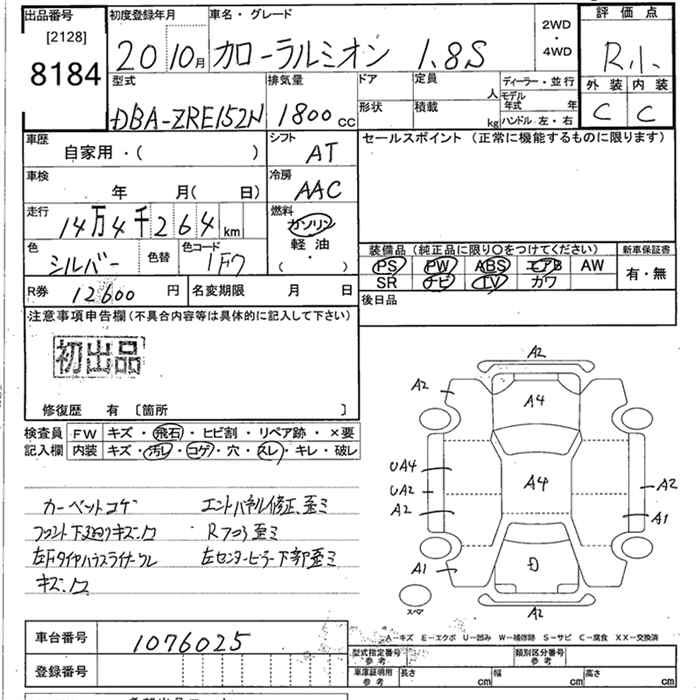 出品番号 初度登録年月 車名・グレード 2WD・4WD 評価点
[2128]
8184 20 10月 カローラルミオン 1.8S R.1.
型式 排気量 ドア 定員 人 ディーラー・並行 外装 内装
DBA-ZRE152N 1800cc 形状 積載 kg モデル年式 年 C C
ハンドル 左・右
車歴 シフト セールスポイント (正常に機能するものに限ります)
自家用・( ) AT
車検 冷房
年 月( 日) AAC
走行 燃料
14万4千264km ガソリン
軽油
・
( )
色 色替 色コード 装備品 (純正品に限り○をつけてください) 新車保証書
シルバー 1F7 PS PW ABS エアB AW 有・無
SR ナビ TV カワ
R券 12600円 名変期限 月 日 後日品
注意事項申告欄(不具合内容等は具体的に記入して下さい)
初出品
修復歴 有 〔箇所 〕
検査員 FW キズ・飛石・ヒビ割・リペア跡・×要
記入欄 内装 キズ・汚レ・コゲ・穴・スレ・キレ・破レ
カーペットコゲ エンドパネル修正、歪ミ
フロント下廻りキズ、凹 Rフロア歪ミ
左Fタイヤハウスライナーワレ 左センターピラー下部歪ミ
キズ、凹
A2
A2 A4
UA4
UA2 A4 A2
A2 A1
A1 D
スペア A2
A-キズ E-エクボ U-凹み W-補修跡 S-サビ C-腐食 XX-交換済
車台番号 1076025
型式指定番号 参考 類別区分番号 参考
登録番号 車庫証明用 参考 長さ cm 幅 cm 高さ cm